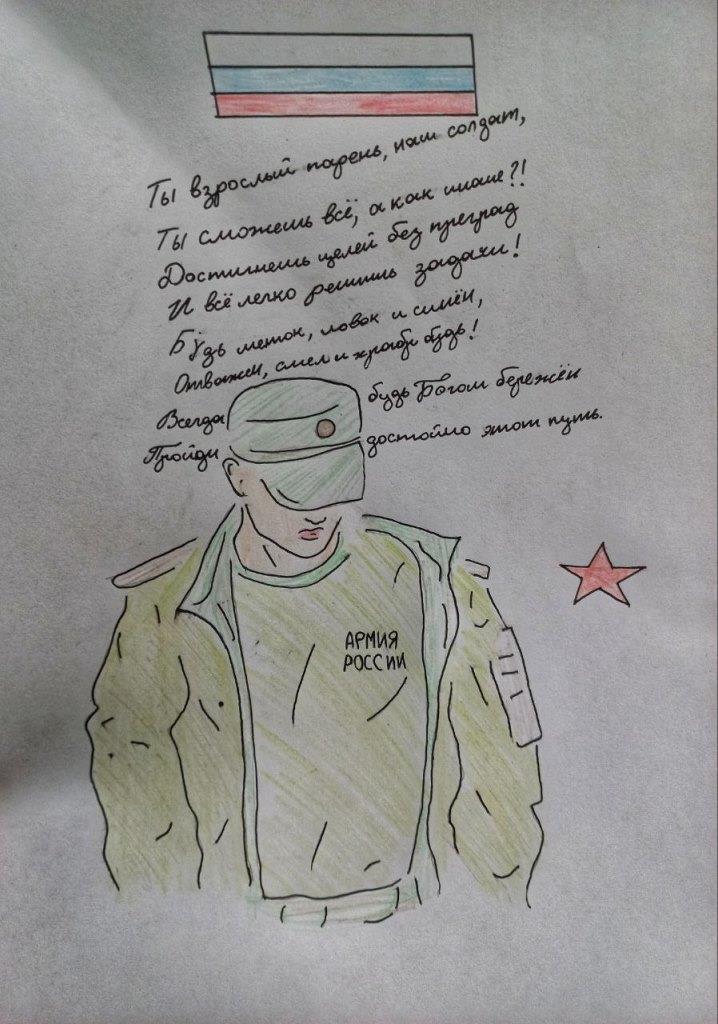 Ты взрослый парень, наш солдат,
Ты сможешь всё, а как иначе?!
Достигнешь целей без преград
И всё легко решишь задачи!
Будь меток, ловок и силён,
Отважен, смел и храбр будь!
Всегда будь Богом бережён
Пройди достойно этот путь.
АРМИЯ
РОССИИ